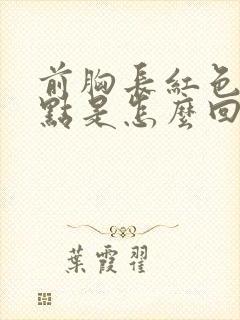 前胸長紅色
點是怎麼回
葉霞翟